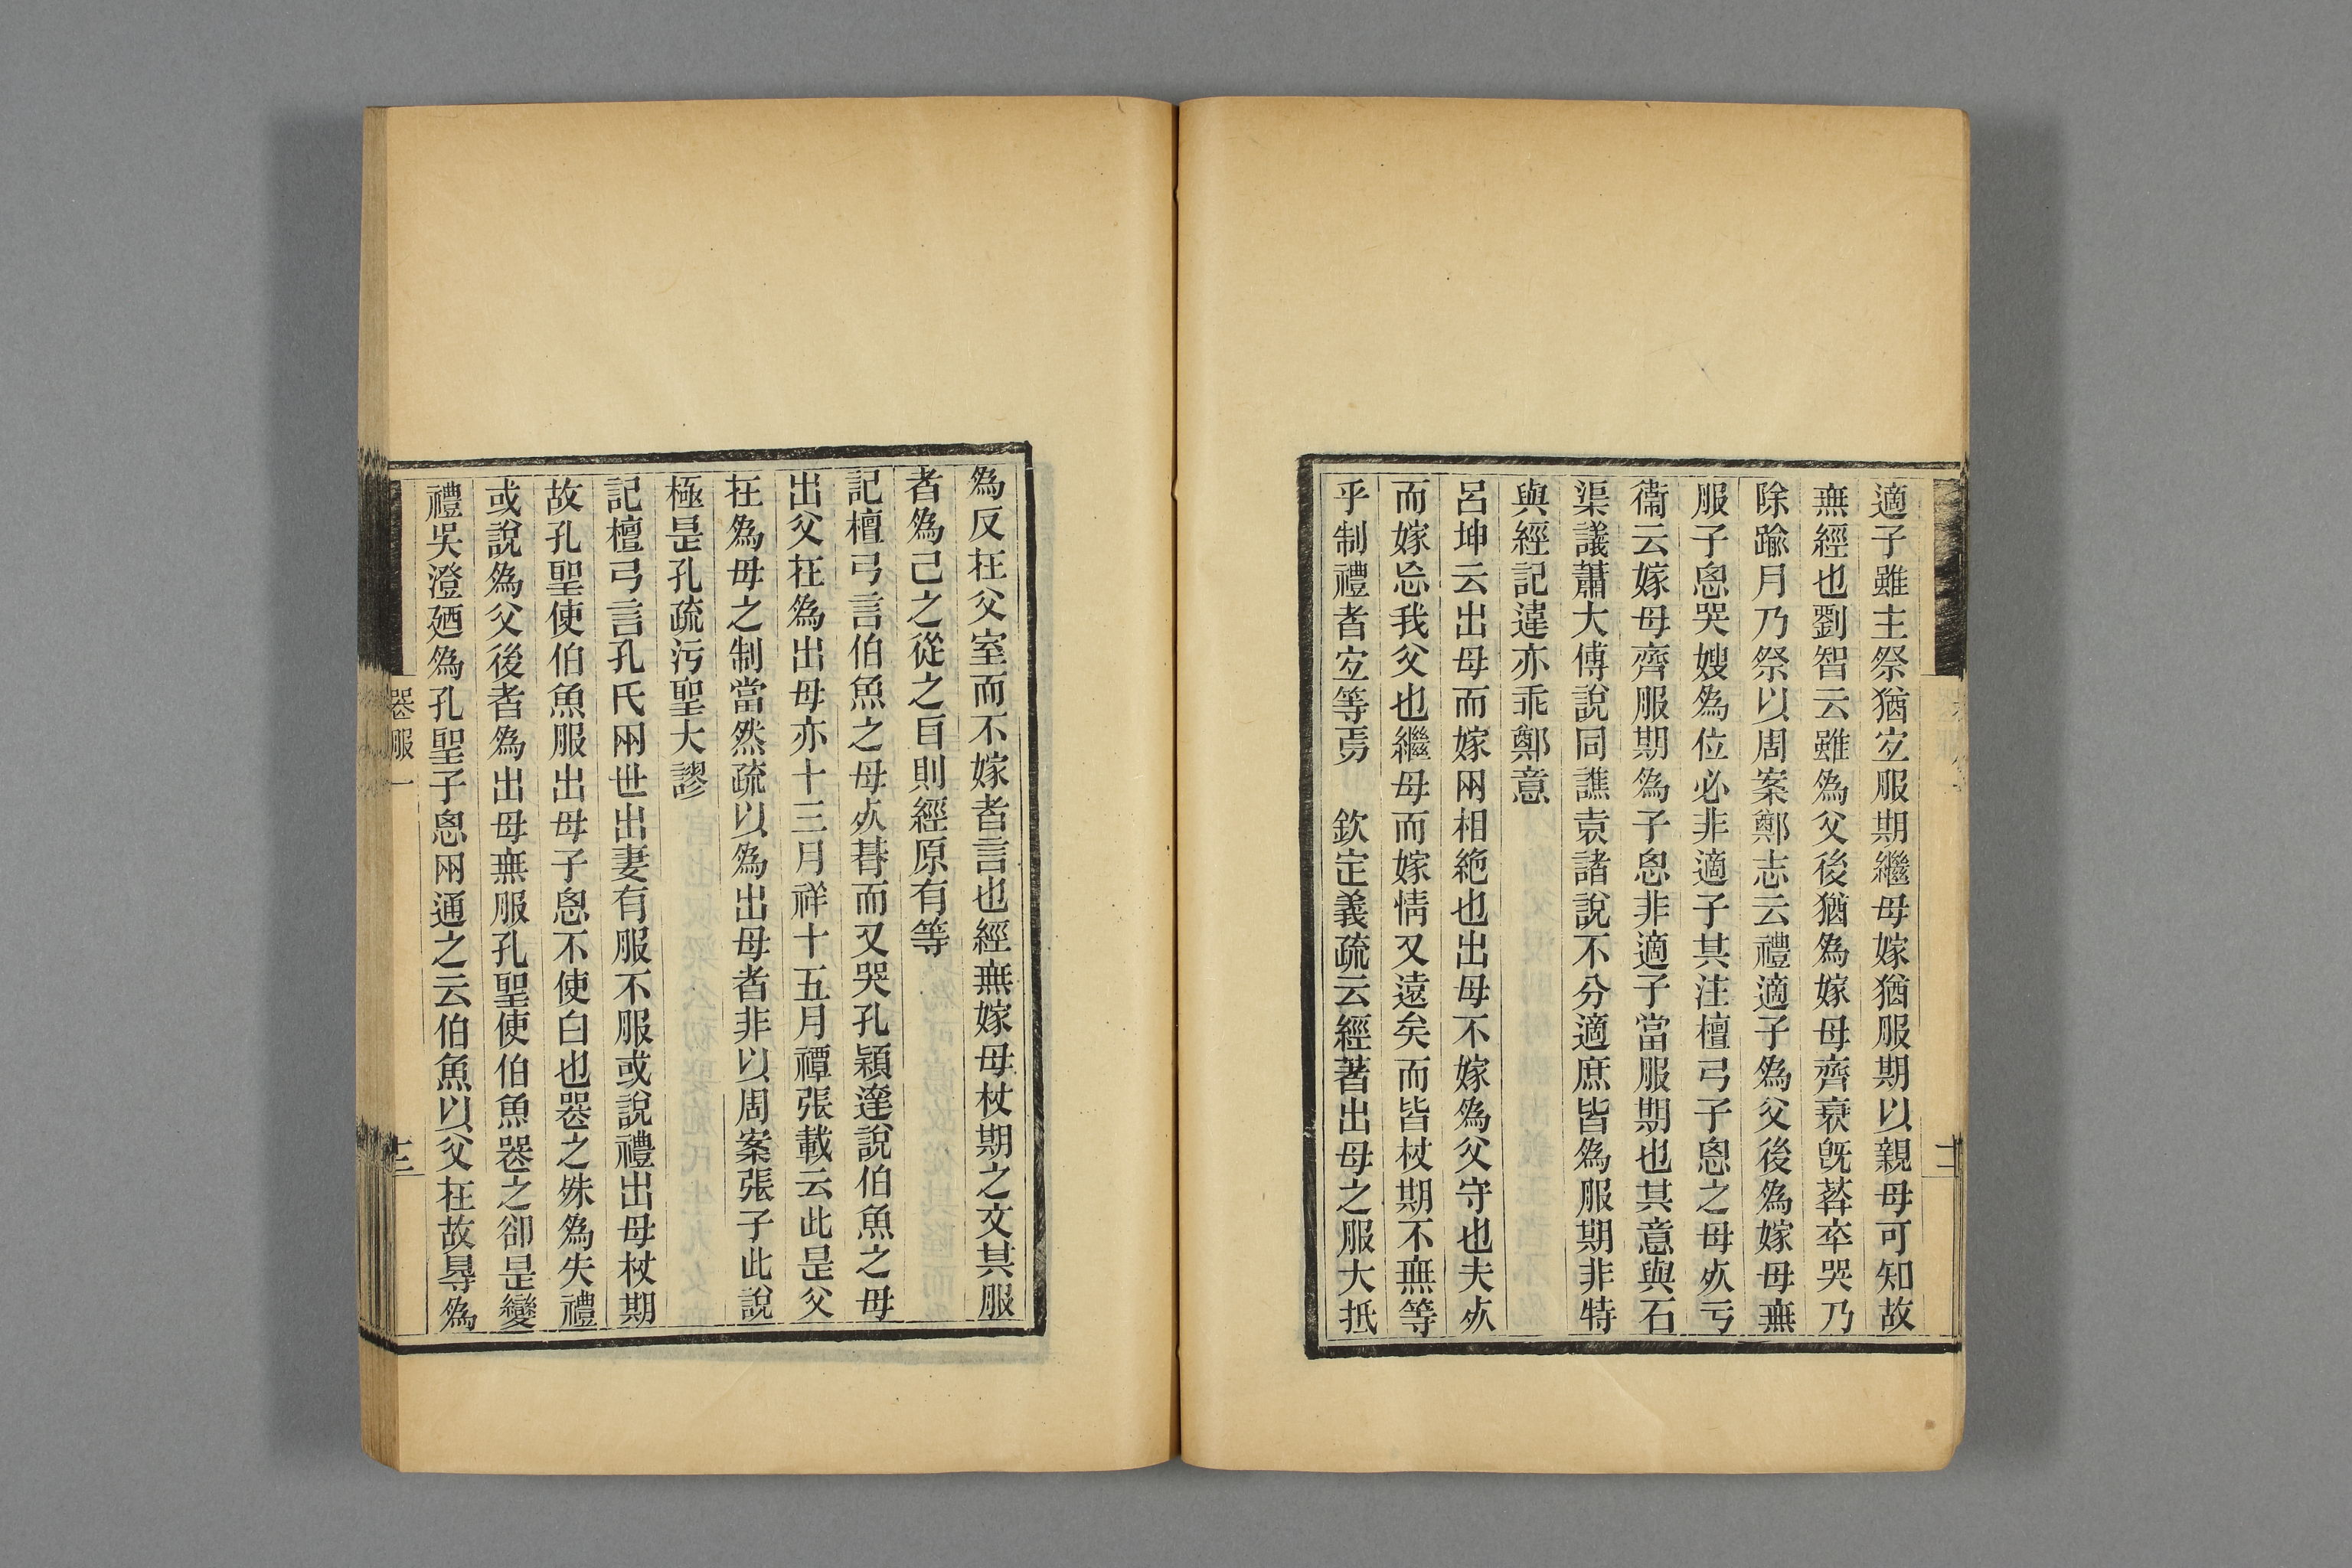 適子雖主祭猶宐服期繼母嫁猶服期以親母可知故
無經也劉智云雖為父後猶為嫁母齊衰旣葬卒哭乃
除踰月乃祭以周案鄭志云禮適子為父後為嫁母無
服子思哭嫂為位必非適子其注檀弓子思之母𣦸亏
衞云嫁母齊服期為子思非適子當服期也其意與石
渠議蕭大傅說同譙袁諸說不分適庶皆為服期非特
與經記違亦乖鄭意
呂坤云出母而嫁兩相絶也出母不嫁為父守也夫𣦸
而嫁忘我父也繼母而嫁情又遠矣而皆杖期不無等
乎制禮者宐等焉　欽定義疏云經著出母之服大抵
為反在父室而不嫁者言也經無嫁母杖期之文其服
者為己之從之㫖則經原有等
記檀弓言伯魚之母𣦸朞而又哭孔穎達說伯魚之母
出父在為出母亦十三月祥十五月禫張載云此是父
在為母之制當然疏以為出母者非以周案張子此說
極是孔疏污聖大謬
記檀弓言孔氏兩世出妻有服不服或說禮出母杖期
故孔聖使伯魚服出母子思不使白也喪之殊為失禮
或說為父後者為出母無服孔聖使伯魚喪之卻是變
禮吳澄廼為孔聖子思兩通之云伯魚以父在故得為
喪服一